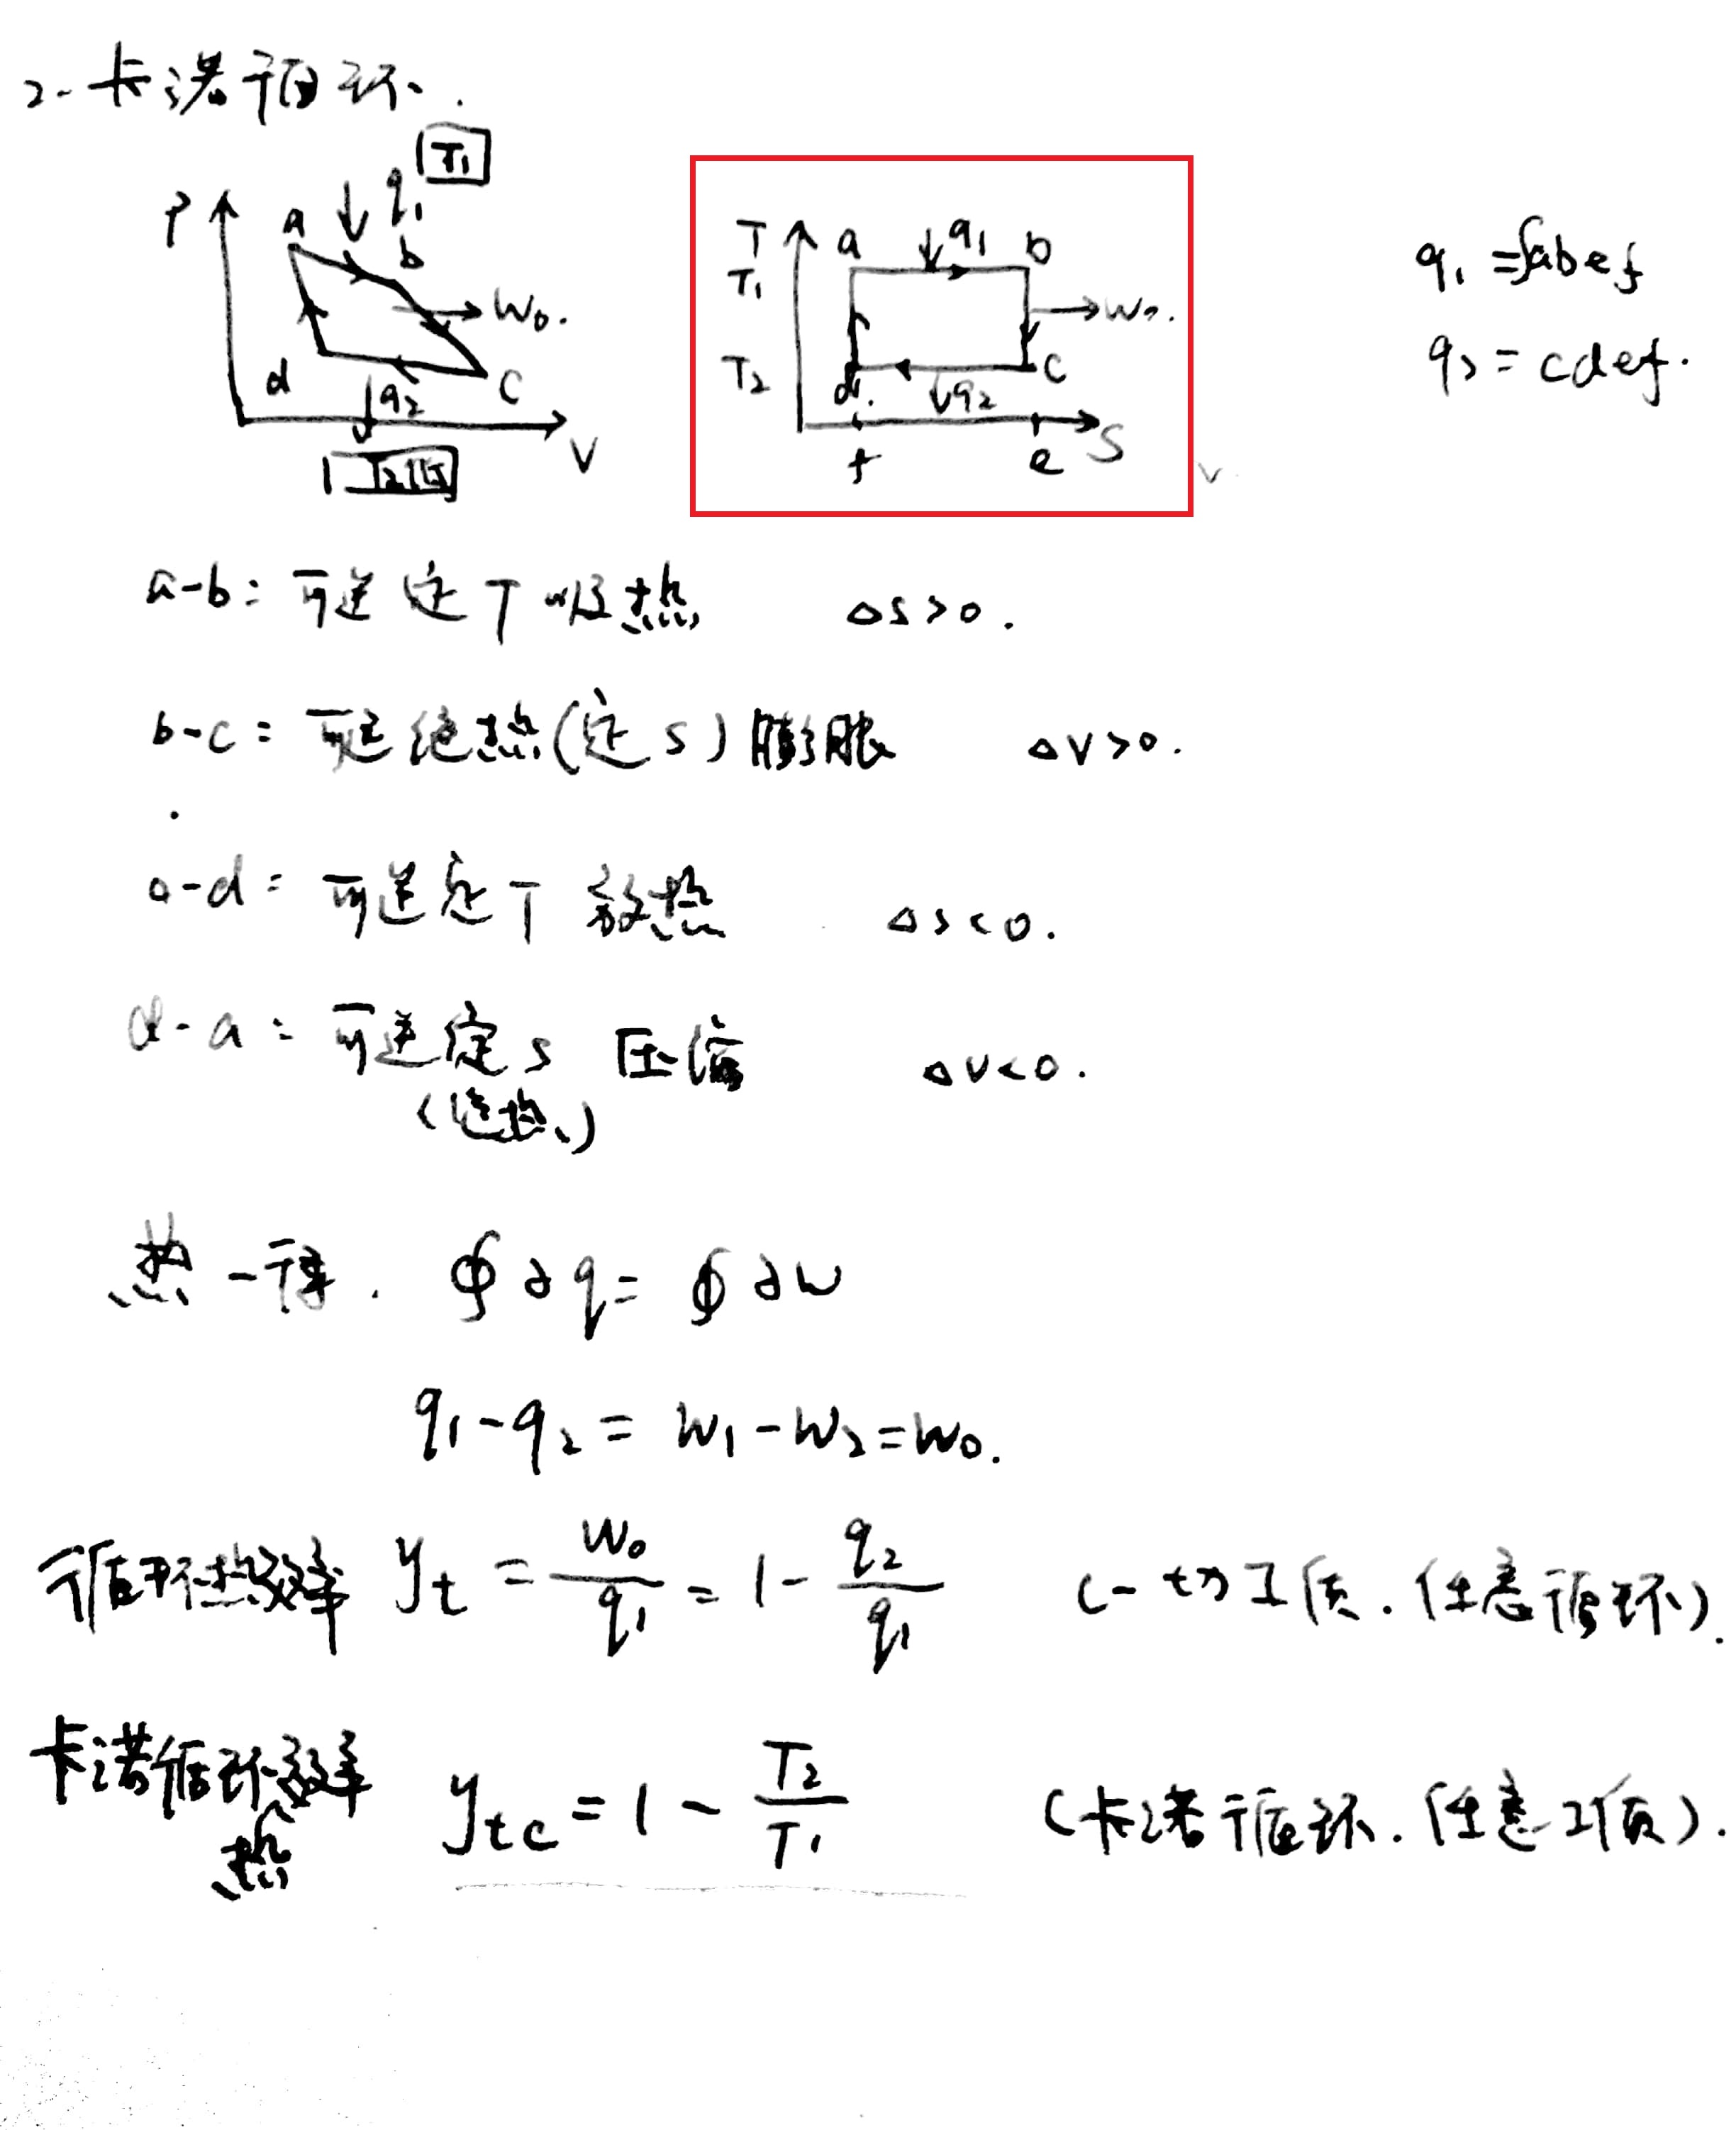 2. 卡诺循环.
T₁
P a q₁ b W₀. d q₂ c V
T a q₁ b T₁ W₀. T₂ d. q₂ c f e S
q₁ = Sabef
q₂ = cdef.
a-b: 可逆定T吸热 Δs>0.
b-c: 可逆绝热(定s)膨胀 Δv>0.
c-d: 可逆定T 放热 Δs<0.
d-a: 可逆定s 压缩 Δv<0.
(绝热)
热一律. ∮∂q = ∮∂w
q₁-q₂ = w₁-w₂=w₀.
循环热效率 yt = W₀/q₁ = 1 - q₂/q₁ (一切工质.任意循环).
卡诺循环效率 ytc = 1 - T₂/T₁ (卡诺循环.任意工质).
热